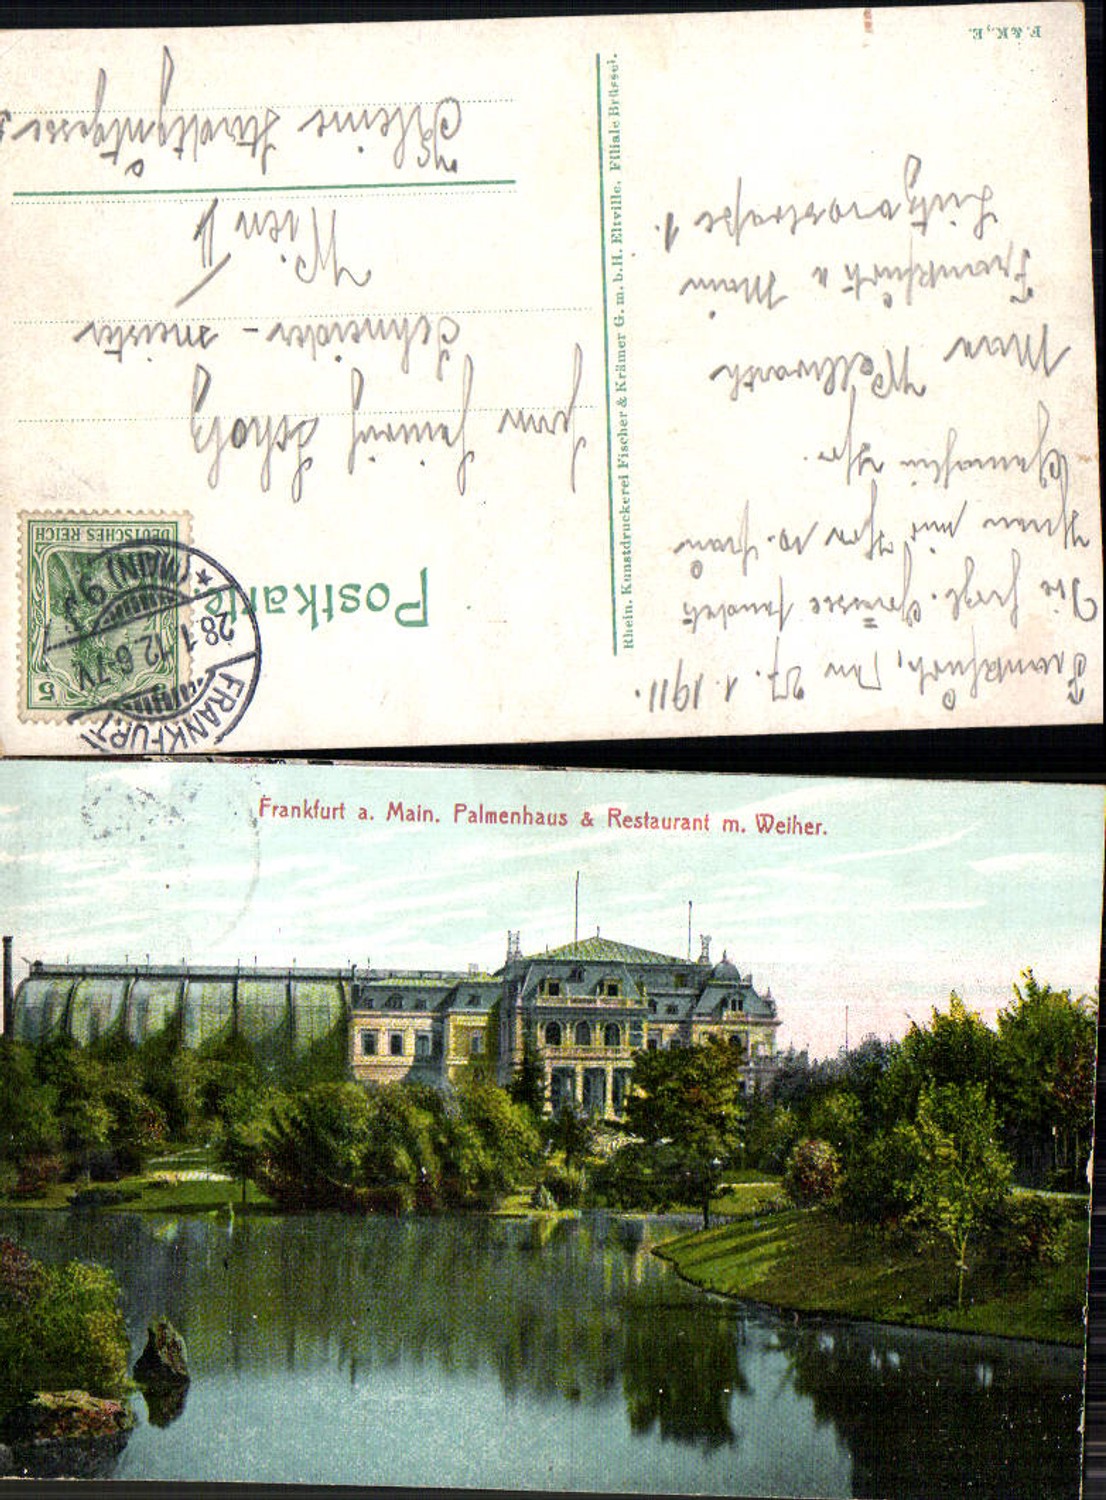 Frankfurt, den 27.1.1911.
Die herzl. Grüsse sendet
Ihnen und Ihrer w. Frau
Gemahlin Ihr
Max Wellwarth
Frankfurt a Main
Lützowstraße 1.
F. & K., E.
Rhein. Kunstdruckerei Fischer & Krämer G. m. b. H. Eltville. Filiale Brüssel.
Postkarte
DEUTSCHES REICH
5
FRANKFURT
28.1.12.6-7V.
* (MAIN) 9
Herrn Heinrich Scholz
Schneider - meister
Wien II
Kleine
Frankfurt a. Main. Palmenhaus & Restaurant m. Weiher.